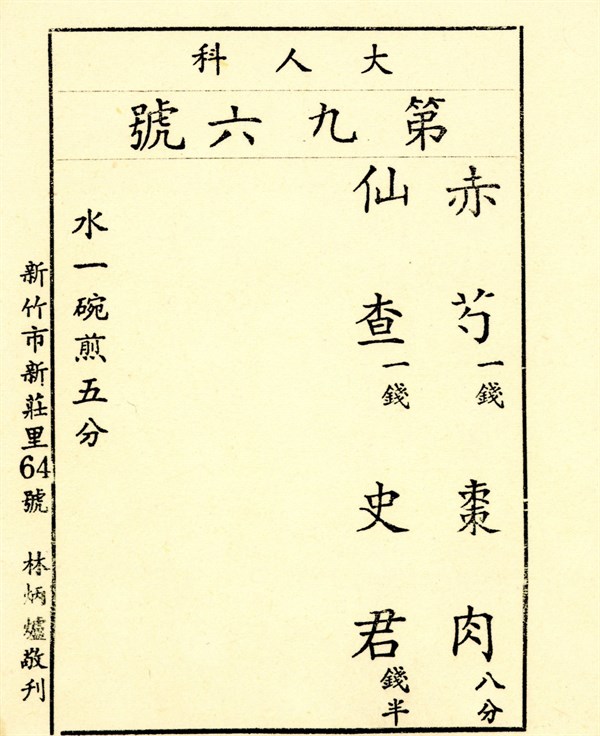 大人科
第九六號
赤芍一錢 棗肉八分
仙查一錢 史君錢半
水一碗煎五分
新竹市新莊里64號 林炳爐敬刊